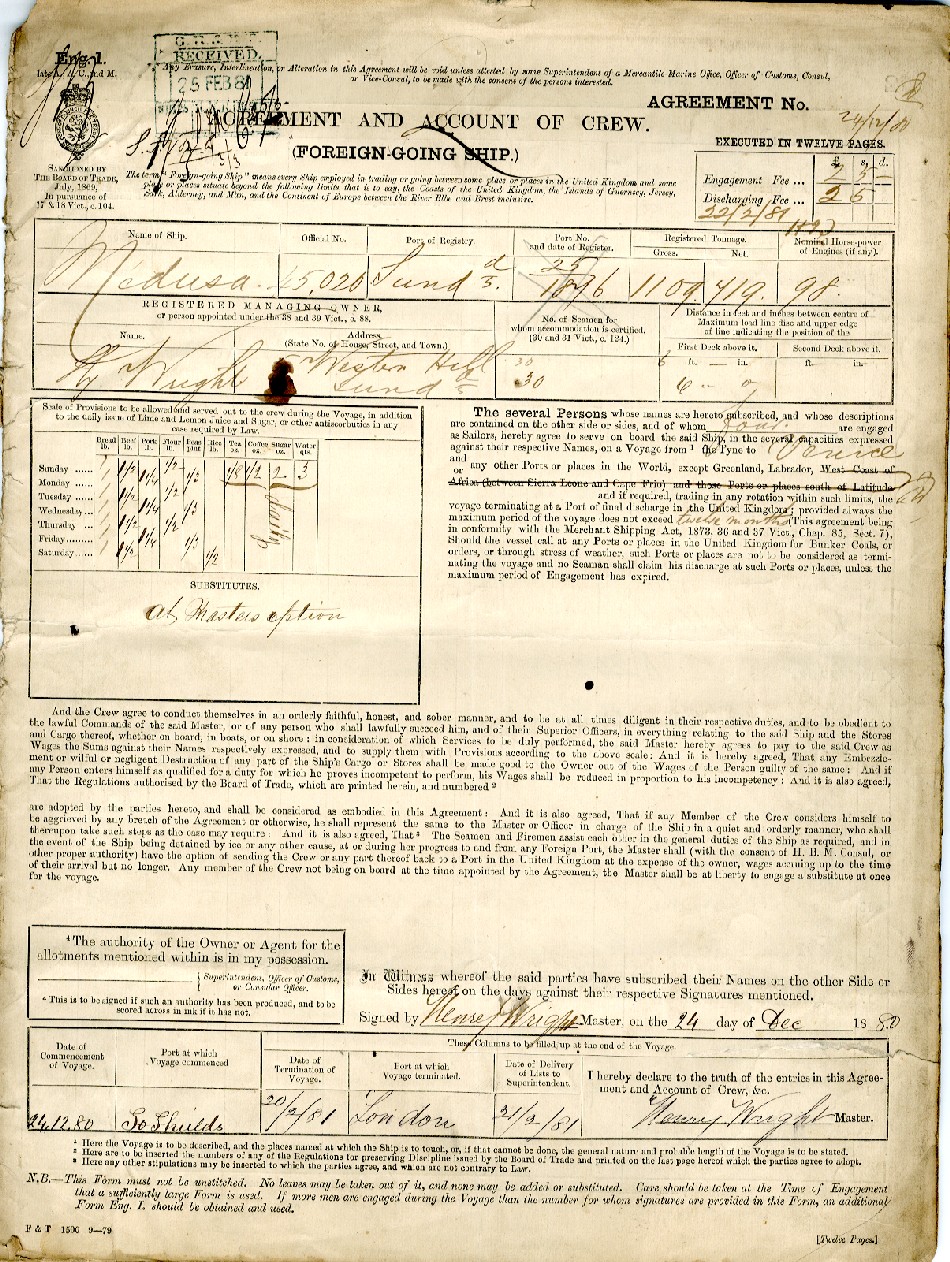 Eng. 1.
late A., U., and M.
G.R.
RECEIVED.
25 FEB 81
Any Erasure, Interlineation, or Alteration in this Agreement will be void unless attested by some Superintendent of a Mercantile Marine Office, Officer of Customs, Consul,
or Vice-Consul, to be made with the consent of the persons interested.
AGREEMENT No.
24/12/80
AGREEMENT AND ACCOUNT OF CREW.
(FOREIGN-GOING SHIP.)
EXECUTED IN TWELVE PAGES.
SANCTIONED BY
THE BOARD OF TRADE,
July, 1869,
In pursuance of
17 & 18 Vict., c. 104.
The term "Foreign-going Ship" means every Ship employed in trading or going between some place or places in the United Kingdom and some
place or places situate beyond the following limits that is to say, the Coasts of the United Kingdom, the Islands of Guernsey, Jersey,
Sark, Alderney, and Man, and the Continent of Europe between the River Elbe and Brest inclusive.
£ s. d.
Engagement Fee ...
Discharging Fee ... 2 5
22/2/81
Name of Ship.
Official No.
Port of Registry.
Port No.
and date of Register.
Registered Tonnage.
Gross.
Net.
Nominal Horse-power
of Engines (if any).
Medusa. 45,026 Sund d. 25 1876 1109 719. 98.
REGISTERED MANAGING OWNER,
or person appointed under the 38 and 39 Vict., c. 88.
Name.
Address
(State No. of House, Street, and Town.)
No. of Seamen for
whom accommodation is certified.
(30 and 31 Vict., c. 124.)
Distance in feet and inches between centre of
Maximum load line disc and upper edge
of line indicating the position of the
First Deck above it.
Second Deck above it.
ft. in.
ft. in.
Hy Wright
Sund
30
30
6
Scale of Provisions to be allowed and served out to the crew during the Voyage, in addition
to the daily issue of Lime and Lemon Juice and Sugar, or other antiscorbutics in any
case required by Law.
Bread lb. Beef lb. Pork lb. Flour lb. Peas pint Rice lb. Tea oz. Coffee oz. Sugar oz. Water qts.
Sunday ...... 1 1/2 1/2 1/8 1/2 2 3
Monday ...... 1 1 1/4 1/3
Tuesday ...... 1 1/2 1/2
Wednesday ...... 1 1 1/4 1/3
Thursday ...... 1 1/2 1/2
Friday ...... 1 1 1/4 1/3
Saturday ...... 1 1/2 1/2
daily
SUBSTITUTES.
at Masters option
The several Persons whose names are hereto subscribed, and whose descriptions
are contained on the other side or sides, and of whom four are engaged
as Sailors, hereby agree to serve on board the said Ship, in the several capacities expressed
against their respective Names, on a Voyage from ¹ the Tyne to Venice
and
or any other Ports or places in the World, except Greenland, Labrador, West Coast of
Africa (between Sierra Leone and Cape Frio) and those Ports or places south of Latitude
and if required, trading in any rotation within such limits, the
voyage terminating at a Port of final discharge in the United Kingdom; provided always the
maximum period of the voyage does not exceed twelve months This agreement being
in conformity with the Merchant Shipping Act, 1873. 36 and 37 Vict., Chap. 85, Sect. 7),
Should the vessel call at any Ports or places in the United Kingdom for Bunker Coals, or
orders, or through stress of weather, such Ports or places are not to be considered as termi-
nating the voyage and no Seaman shall claim his discharge at such Ports or places, unless the
maximum period of Engagement has expired.
And the Crew agree to conduct themselves in an orderly faithful, honest, and sober manner, and to be at all times diligent in their respective duties, and to be obedient to
the lawful Commands of the said Master, or of any person who shall lawfully succeed him, and of their Superior Officers, in everything relating to the said Ship and the Stores
and Cargo thereof, whether on board, in boats, or on shore: in consideration of which Services to be duly performed, the said Master hereby agrees to pay to the said Crew as
Wages the Sums against their Names respectively expressed, and to supply them with Provisions according to the above scale: And it is hereby agreed, That any Embezzle-
ment or wilful or negligent Destruction of any part of the Ship's Cargo or Stores shall be made good to the Owner out of the Wages of the Person guilty of the same: And if
any Person enters himself as qualified for a duty for which he proves incompetent to perform, his Wages shall be reduced in proportion to his incompetency: And it is also agreed,
That the Regulations authorised by the Board of Trade, which are printed herein, and numbered ²
are adopted by the parties hereto, and shall be considered as embodied in this Agreement: And it is also agreed, That if any Member of the Crew considers himself to
be aggrieved by any breach of the Agreement or otherwise, he shall represent the same to the Master or Officer in charge of the Ship in a quiet and orderly manner, who shall
thereupon take such steps as the case may require: And it is also agreed, That ³ The Seamen and Firemen assist each other in the general duties of the Ship as required, and in
the event of the Ship being detained by ice or any other cause, at or during her progress to and from any Foreign Port, the Master shall (with the consent of H. B. M. Consul, or
other proper authority) have the option of sending the Crew or any part thereof back to a Port in the United Kingdom at the expense of the owner, wages accruing up to the time
of their arrival but no longer. Any member of the Crew not being on board at the time appointed by the Agreement, the Master shall be at liberty to engage a substitute at once
for the voyage.
⁴ The authority of the Owner or Agent for the
allotments mentioned within is in my possession.
Superintendent, Officer of Customs,
or Consular Officer.
⁴ This is to be signed if such an authority has been produced, and to be
scored across in ink if it has not.
In Witness whereof the said parties have subscribed their Names on the other Side or
Sides hereof on the days against their respective Signatures mentioned.
Signed by Henry Wright Master, on the 24 day of Dec 18 80
These Columns to be filled up at the end of the Voyage.
Date of
Commencement
of Voyage.
Port at which
Voyage commenced
Date of
Termination of
Voyage.
Port at which
Voyage terminated.
Date of Delivery
of Lists to
Superintendent.
I hereby declare to the truth of the entries in this Agree-
ment and Account of Crew, &c.
24.12.80 So Shields 20/2/81 London 21/2/81 Henry Wright Master.
¹ Here the Voyage is to be described, and the places named at which the Ship is to touch, or, if that cannot be done, the general nature and probable length of the Voyage is to be stated.
² Here are to be inserted the numbers of any of the Regulations for preserving Discipline issued by the Board of Trade and printed on the last page hereof which the parties agree to adopt.
³ Here any other stipulations may be inserted to which the parties agree, and which are not contrary to Law.
N.B.—This Form must not be unstitched. No leaves may be taken out of it, and none may be added or substituted. Care should be taken at the Time of Engagement
that a sufficiently large Form is used. If more men are engaged during the Voyage than the number for whom signatures are provided in this Form, an additional
Form Eng. 1. should be obtained and used.
F & T 1500 9—79
[Twelve Pages.]